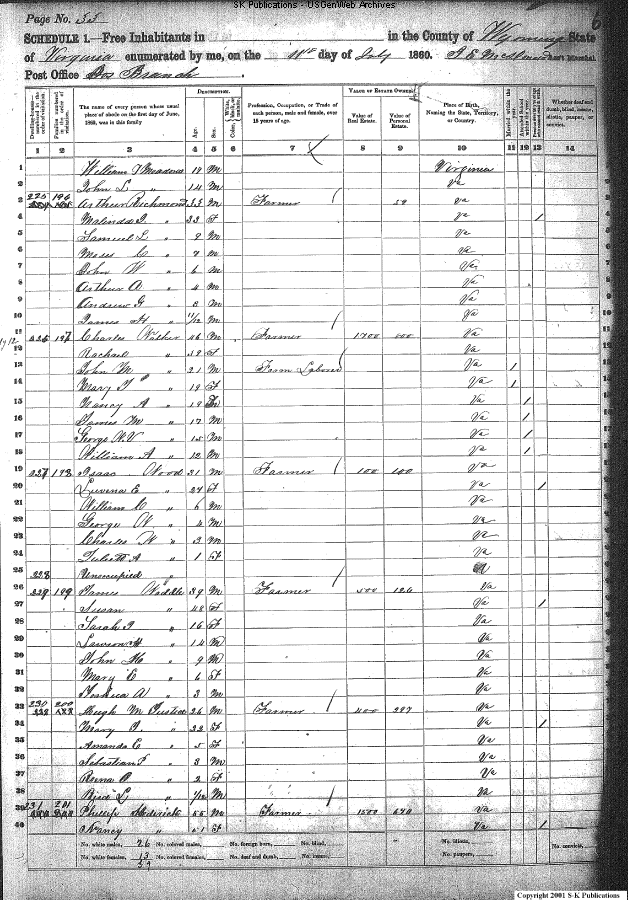 SK Publications - USGenWeb Archives
Page No. 55
SCHEDULE 1.—Free Inhabitants in in the County of Wyoming State
of Virginia enumerated by me, on the 11th day of July 1860. Ass't Marshal
Post Office Branch
DESCRIPTION. VALUE OF ESTATE OWNED.
The name of every person whose usual place of abode on the first day of June, 1860, was in this family
Age. Sex.
Profession, Occupation, or Trade of each person, male and female, over 15 years of age.
Value of Real Estate. Value of Personal Estate.
Place of Birth, Naming the State, Territory, or Country.
Whether deaf and dumb, blind, insane, idiotic, pauper, or convict.
1 2 3 4 5 6 7 8 9 10 11 12 13 14
1 William T Meadows 17 M Virginia
2 John L " 14 M Va
3 225 196 Arthur Richmond 33 M Farmer Va
4 Malinda " 33 F Va 1
5 Samuel L " 9 M Va
6 Moses C " 7 M Va
7 John W " 6 M Va
8 Arthur A " 4 M Va
9 Andrew G " M Va
10 James H " 11/12 M Va
11 226 197 Charles Walker 46 M Farmer 1700 Va
12 Rachael " 39 F Va
13 John M " 21 M Farm Laborer Va 1
14 Mary " 19 F Va 1
15 Nancy A " 19 Va 1
16 James M " 17 M Va 1
17 George W " 15 M Va 1
18 William A " 12 M Va 1
19 227 198 Isaac Wood 31 M Farmer 100 100 Va
20 Luvena E " 27 F Va 1
21 William C " 6 M Va
22 George W " 4 M Va
23 Charles W " 3 M Va
24 Juliett A " 1 F Va
25 228 Unoccupied "
26 229 199 James Waddle 39 M Farmer 500 126 Va
27 Susan " 48 F Va 1
28 Sarah " 16 F Va
29 Lawson H " 14 M Va
30 John H " 9 M Va
31 Mary E " 6 F Va
32 Joshua A " 3 M Va
33 230 200 Hugh M Justice 26 M Farmer 400 297 Va
34 Mary " 22 F Va 1
35 Amanda C " 5 F Va
36 Sebastian " 3 M Va
37 Rena " 2 F Va
38 L " /12 M Va
39 231 201 Phillip 55 M Farmer 1500 640 Va
40 Nancy " 51 F Va 1
No. white males, 26 No. colored males, No. foreign born, No. blind, No. idiotic, No. convicts,
No. white females, 13 No. colored females, No. deaf and dumb, No. insane, No. paupers,
Copyright 2001 S-K Publications